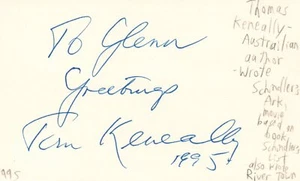 To Glenn
Greetings
Tom Keneally
1995
Thomas
Keneally-
Australian
author
-Wrote
Schindler's
Ark,
movie
based on
book,
Schindler's
List
also wrote
River Town
995